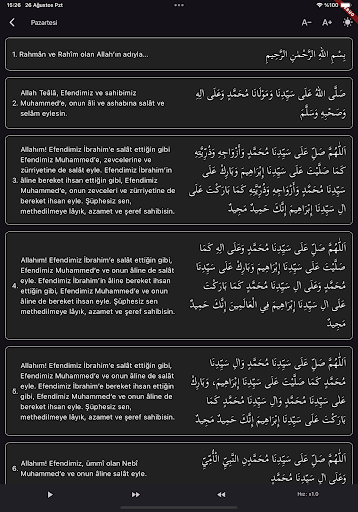 15:26 26 Ağustos Pzt
%100
Pazartesi
A− A+
1. Rahmân ve Rahîm olan Allah'ın adıyla...
بِسْمِ اللّٰهِ الرَّحْمٰنِ الرَّحِيمِ
2. Allah Teâlâ, Efendimiz ve sahibimiz
Muhammed'e, onun âli ve ashabına salât ve
selâm eylesin.
صَلَّى اللّٰهُ عَلَى سَيِّدِنَا وَمَوْلَانَا مُحَمَّدٍ وَعَلَى اٰلِهِ
وَصَحْبِهِ وَسَلَّمَ
3. Allahım! Efendimiz İbrahim'e salât ettiğin gibi
Efendimiz Muhammed'e, zevcelerine ve
zürriyetine de salât eyle. Efendimiz İbrahim'in
âline bereket ihsan ettiğin gibi, Efendimiz
Muhammed'e, onun zevceleri ve zürriyetine de
bereket ihsan eyle. Şüphesiz sen,
methedilmeye lâyık, azamet ve şeref sahibisin.
اَللّٰهُمَّ صَلِّ عَلَى سَيِّدِنَا مُحَمَّدٍ وَأَزْوَاجِهِ وَذُرِّيَّتِهِ
كَمَا صَلَّيْتَ عَلَى سَيِّدِنَا إِبْرَاهِيمَ وَبَارِكْ عَلَى
سَيِّدِنَا مُحَمَّدٍ وَأَزْوَاجِهِ وَذُرِّيَّتِهِ كَمَا بَارَكْتَ عَلَى
اٰلِ سَيِّدِنَا إِبْرَاهِيمَ إِنَّكَ حَمِيدٌ مَجِيدٌ
4. Allahım! Efendimiz İbrahim'e salât ettiğin gibi,
Efendimiz Muhammed'e ve onun âline de salât
eyle. Efendimiz İbrahim'in âline bereket ihsan
ettiğin gibi, Efendimiz Muhammed'e ve onun
âline de bereket ihsan eyle. Şüphesiz sen
methedilmeye lâyık, azamet ve şeref sahibisin.
اَللّٰهُمَّ صَلِّ عَلَى سَيِّدِنَا مُحَمَّدٍ وَعَلَى اٰلِهِ كَمَا
صَلَّيْتَ عَلَى سَيِّدِنَا إِبْرَاهِيمَ وَبَارِكْ عَلَى سَيِّدِنَا
مُحَمَّدٍ وَعَلَى اٰلِ سَيِّدِنَا مُحَمَّدٍ كَمَا بَارَكْتَ
عَلَى اٰلِ سَيِّدِنَا إِبْرَاهِيمَ فِي الْعَالَمِينَ إِنَّكَ حَمِيدٌ
مَجِيدٌ
5. Allahım! Efendimiz İbrahim'e salât ettiğin gibi,
Efendimiz Muhammed'e ve onun âline de salât
eyle. Efendimiz İbrahim'e bereket ihsan ettiğin
gibi, Efendimiz Muhammed'e ve onun âline de
bereket ihsan eyle. Şüphesiz sen,
methedilmeye lâyık, azamet ve şeref sahibisin.
اَللّٰهُمَّ صَلِّ عَلَى سَيِّدِنَا مُحَمَّدٍ وَاٰلِ سَيِّدِنَا
مُحَمَّدٍ كَمَا صَلَّيْتَ عَلَى سَيِّدِنَا إِبْرَاهِيمَ، وَبَارِكْ
عَلَى سَيِّدِنَا مُحَمَّدٍ وَاٰلِ سَيِّدِنَا مُحَمَّدٍ كَمَا
بَارَكْتَ عَلَى سَيِّدِنَا إِبْرَاهِيمَ إِنَّكَ حَمِيدٌ مَجِيدٌ
6. Allahım! Efendimiz, ümmî olan Nebî
Muhammed'e ve onun âline salât eyle.
اَللّٰهُمَّ صَلِّ عَلَى سَيِّدِنَا مُحَمَّدٍنِ النَّبِيِّ الْأُمِّيِّ
وَعَلَى اٰلِ سَيِّدِنَا مُحَمَّدٍ
Hız: x1.0